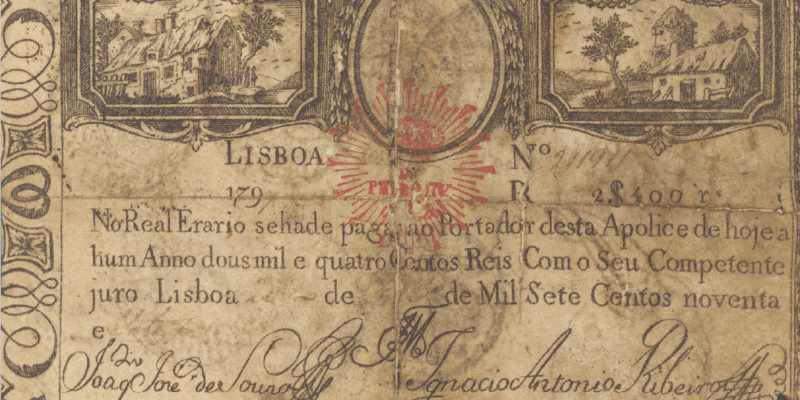 LISBOA Nº
179 R 2$400 r
No Real Erario se hade pagar ao Portador desta Apolice de hoje a
hum Anno dous mil e quatro Centos Reis Com o Seu Competente
juro Lisboa de de Mil Sete Centos noventa
e
Joaq Jose de Souza Ignacio Antonio Ribeiro